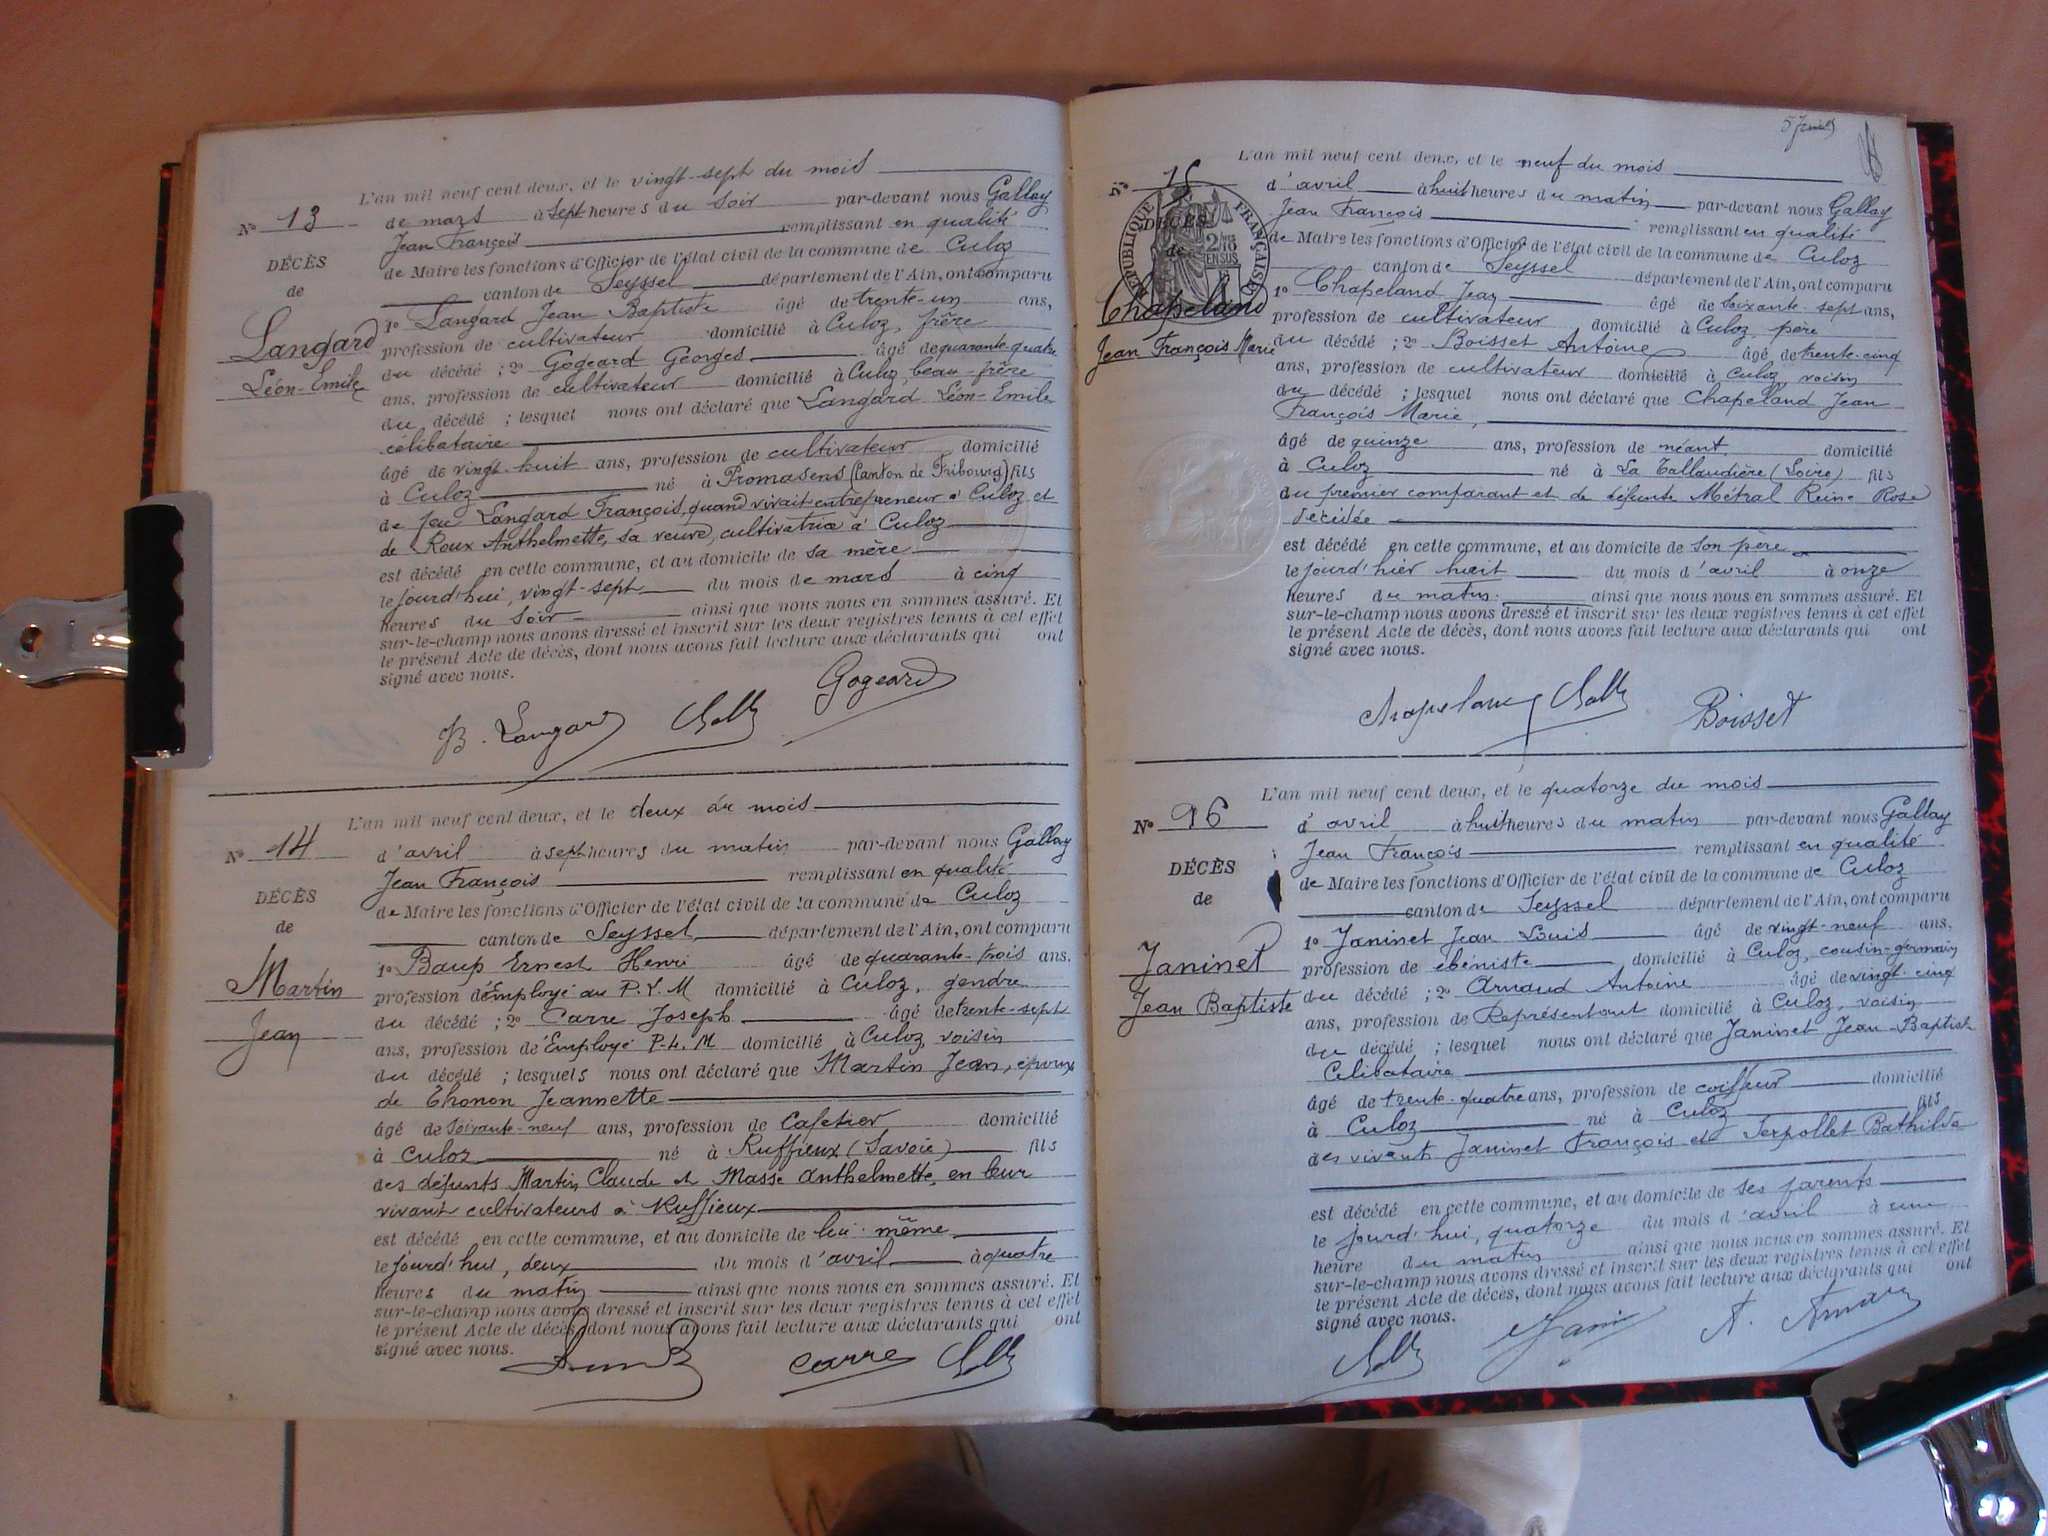 L'an mil neuf cent deux, et le vingt-sept du mois
Nº 13
de mars à sept heures du soir par-devant nous Gallay
Jean François remplissant en qualité
DÉCÈS
de Maire les fonctions d'Officier de l'état civil de la commune de Culoz
de
canton de Seyssel département de l'Ain, ont comparu
Langard
1º Langard Jean Baptiste âgé de trente-un ans,
profession de cultivateur domicilié à Culoz, frère
Léon-Emile
du décédé ; 2º Gogeard Georges âgé de quarante-quatre
ans, profession de cultivateur domicilié à Culoz, beau-frère
du décédé ; lesquel nous ont déclaré que Langard Léon-Emile
célibataire
âgé de vingt-huit ans, profession de cultivateur domicilié
à Culoz né à Promasens (canton de Fribourg) fils
de feu Langard François, quand vivait entrepreneur à Culoz et
de Roux Anthelmette, sa veuve, cultivatrice à Culoz
est décédé en cette commune, et au domicile de sa mère
le jourd'hui, vingt-sept du mois de mars à cinq
heures du soir ainsi que nous nous en sommes assuré. Et
sur-le-champ nous avons dressé et inscrit sur les deux registres tenus à cet effet
le présent Acte de décès, dont nous avons fait lecture aux déclarants qui ont
signé avec nous.
B. Langard Gogeard
L'an mil neuf cent deux, et le deux du mois
Nº 14
d'avril à sept heures du matin par-devant nous Gallay
Jean François remplissant en qualité
DÉCÈS
de Maire les fonctions d'Officier de l'état civil de la commune de Culoz
de
canton de Seyssel département de l'Ain, ont comparu
Martin
1º Baup Ernest Henri âgé de quarante-trois ans,
profession d'Employé au P.L.M domicilié à Culoz, gendre
Jean
du décédé ; 2º Carre Joseph âgé de trente-sept
ans, profession de Employé P-L.M domicilié à Culoz, voisin
du décédé ; lesquels nous ont déclaré que Martin Jean, époux
de Thonon Jeannette
âgé de soixante-neuf ans, profession de Cafetier domicilié
à Culoz né à Ruffieux (Savoie) fils
des défunts Martin Claude et Masse Anthelmette, en leur
vivant cultivateurs à Ruffieux
est décédé en cette commune, et au domicile de lui-même
le jourd'hui, deux du mois d'avril à quatre
heures du matin ainsi que nous nous en sommes assuré. Et
sur-le-champ nous avons dressé et inscrit sur les deux registres tenus à cet effet
le présent Acte de décès, dont nous avons fait lecture aux déclarants qui ont
signé avec nous.
carre
L'an mil neuf cent deux, et le neuf du mois
Nº 15
d'avril à huit heures du matin par-devant nous Gallay
Jean François remplissant en qualité
RÉPUBLIQUE FRANÇAISE
DÉCÈS
de Maire les fonctions d'Officier de l'état civil de la commune de Culoz
de
canton de Seyssel département de l'Ain, ont comparu
Chapeland
1º Chapeland Jean âgé de soixante-sept ans,
profession de cultivateur domicilié à Culoz, père
Jean François Marie
du décédé ; 2º Boisset Antoine âgé de trente-cinq
ans, profession de cultivateur domicilié à Culoz, voisin
du décédé ; lesquel nous ont déclaré que Chapeland Jean
François Marie,
âgé de quinze ans, profession de néant domicilié
à Culoz né à La Tallaudière (Loire) fils
du premier comparant et de défunte Métral Reine Rose
décidée
est décédé en cette commune, et au domicile de son père
le jourd'hier huit du mois d'avril à onze
heures du matin ainsi que nous nous en sommes assuré. Et
sur-le-champ nous avons dressé et inscrit sur les deux registres tenus à cet effet
le présent Acte de décès, dont nous avons fait lecture aux déclarants qui ont
signé avec nous.
Chapeland Boisset
L'an mil neuf cent deux, et le quatorze du mois
Nº 16
d'avril à huit heures du matin par-devant nous Gallay
Jean François remplissant en qualité
DÉCÈS
de Maire les fonctions d'Officier de l'état civil de la commune de Culoz
de
canton de Seyssel département de l'Ain, ont comparu
Janinet
1º Janinet Jean Louis âgé de vingt-neuf ans,
profession de ébéniste domicilié à Culoz, cousin-germain
Jean Baptiste
du décédé ; 2º Arnaud Antoine âgé de vingt-cinq
ans, profession de Représentant domicilié à Culoz, voisin
du décédé ; lesquel nous ont déclaré que Janinet Jean-Baptiste
Célibataire
âgé de trente-quatre ans, profession de coiffeur domicilié
à Culoz né à Culoz fils
des vivants Janinet François et Serpollet Bathilde
est décédé en cette commune, et au domicile de ses parents
le jourd'hui, quatorze du mois d'avril à une
heure du matin ainsi que nous nous en sommes assuré. Et
sur-le-champ nous avons dressé et inscrit sur les deux registres tenus à cet effet
le présent Acte de décès, dont nous avons fait lecture aux déclarants qui ont
signé avec nous.